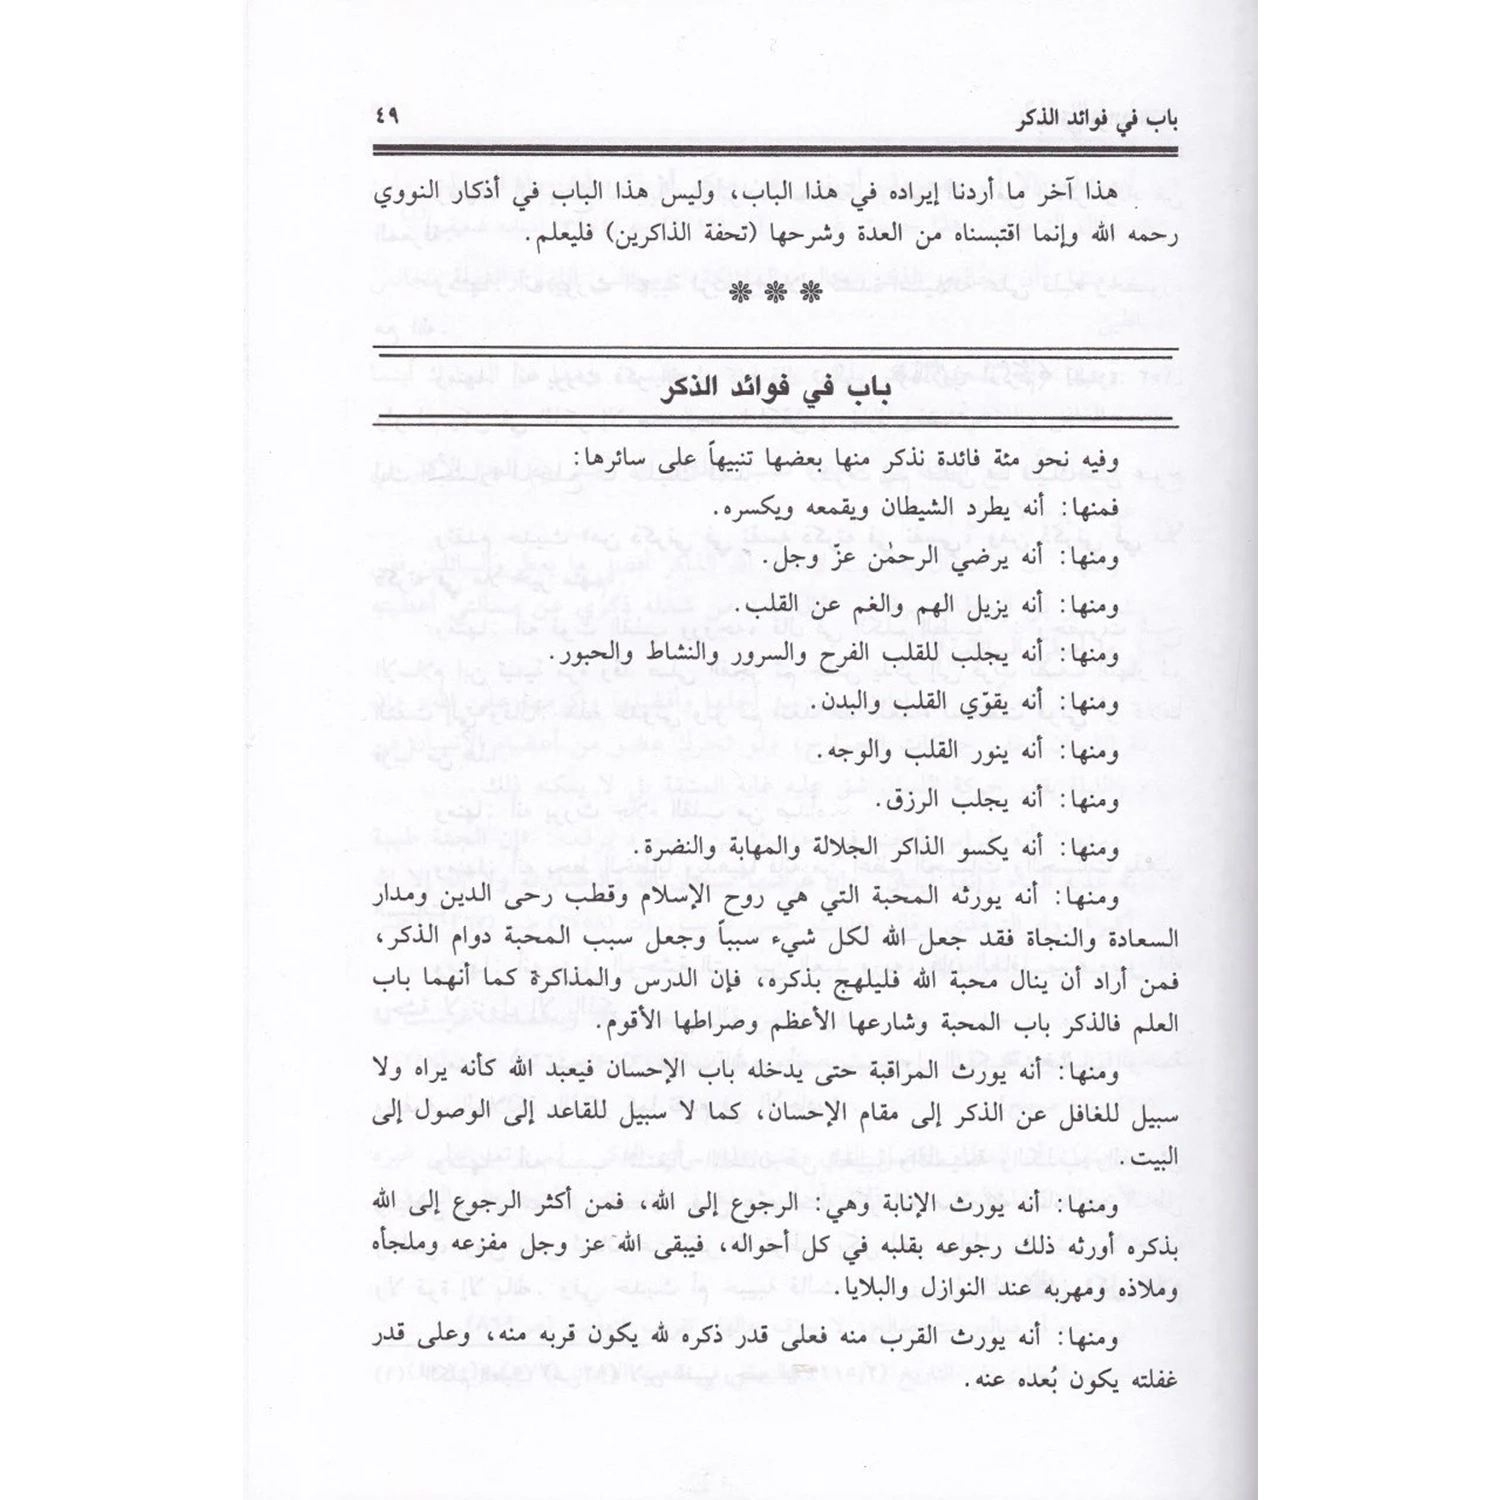 باب في فوائد الذكر ٤٩
هذا آخر ما أردنا إيراده في هذا الباب، وليس هذا الباب في أذكار النووي
رحمه الله وإنما اقتبسناه من العدة وشرحها (تحفة الذاكرين) فليعلم.
باب في فوائد الذكر
وفيه نحو مئة فائدة نذكر منها بعضها تنبيهاً على سائرها:
فمنها: أنه يطرد الشيطان ويقمعه ويكسره.
ومنها: أنه يرضي الرحمٰن عزّ وجل.
ومنها: أنه يزيل الهم والغم عن القلب.
ومنها: أنه يجلب للقلب الفرح والسرور والنشاط والحبور.
ومنها: أنه يقوّي القلب والبدن.
ومنها: أنه ينور القلب والوجه.
ومنها: أنه يجلب الرزق.
ومنها: أنه يكسو الذاكر الجلالة والمهابة والنضرة.
ومنها: أنه يورثه المحبة التي هي روح الإسلام وقطب رحى الدين ومدار
السعادة والنجاة فقد جعل الله لكل شيء سبباً وجعل سبب المحبة دوام الذكر،
فمن أراد أن ينال محبة الله فليلهج بذكره، فإن الدرس والمذاكرة كما أنهما باب
العلم فالذكر باب المحبة وشارعها الأعظم وصراطها الأقوم.
ومنها: أنه يورث المراقبة حتى يدخله باب الإحسان فيعبد الله كأنه يراه ولا
سبيل للغافل عن الذكر إلى مقام الإحسان، كما لا سبيل للقاعد إلى الوصول إلى
البيت.
ومنها: أنه يورث الإنابة وهي: الرجوع إلى الله، فمن أكثر الرجوع إلى الله
بذكره أورثه ذلك رجوعه بقلبه في كل أحواله، فيبقى الله عز وجل مفزعه وملجأه
وملاذه ومهربه عند النوازل والبلايا.
ومنها: أنه يورث القرب منه فعلى قدر ذكره لله يكون قربه منه، وعلى قدر
غفلته يكون بُعده عنه.